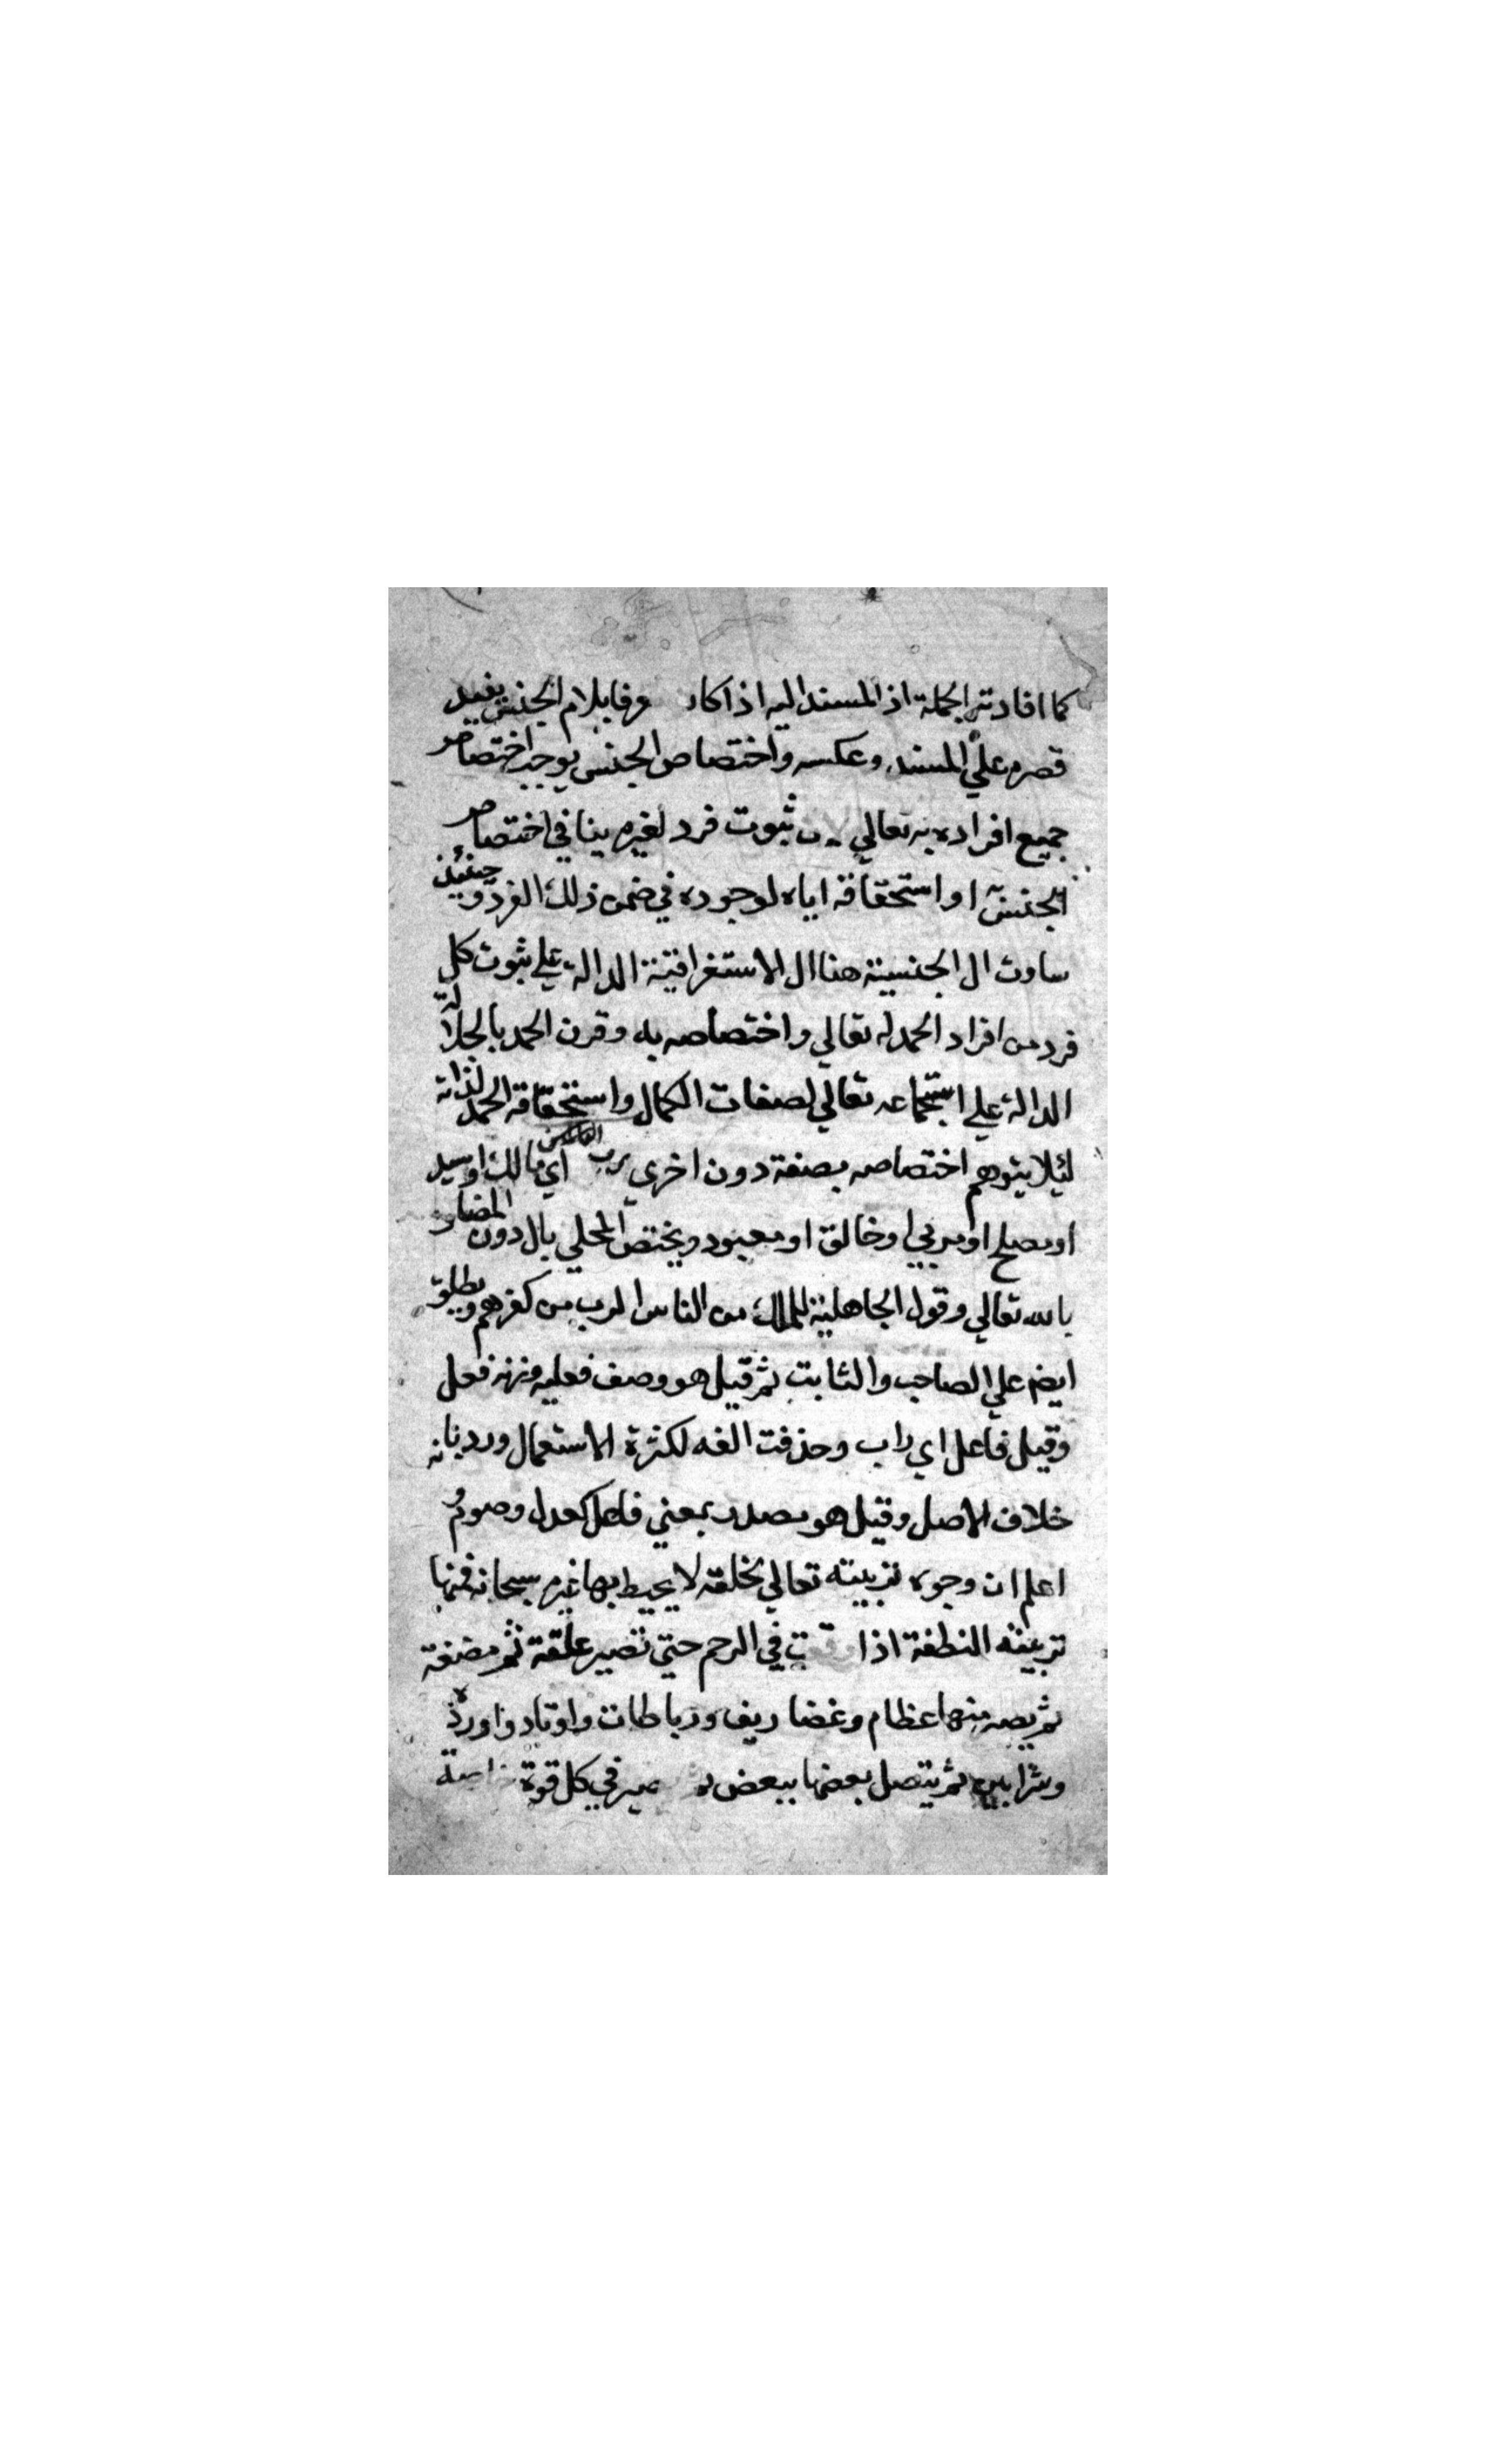 كما افادته الجملة اذ المسند اليه اذا كان معرفا بلام الجنس يفيد
قصره علي المسند وعكسه واختصاص الجنس يوجب اختصاص
جميع افراده به تعالي ثبوت فرد لغيره ينافي اختصاص
الجنس به او استحقاقه اياه لوجوده في ضمن ذلك الفرد وحينئذ
ساوت ال الجنسية هنا ال الاستغراقية الدالة علي ثبوت كل
فرد من افراد الحمد له تعالي واختصاصه به وقرن الحمد بالجلالة
الدالة علي استجماعه تعالي لصفات الكمال واستحقاقه الحمد لذاته
لئلا يتوهم اختصاصه بصفة دون اخري رب العالمين اي مالك او سيد
او مصلح او مربي او خالق او معبود ويختص المحلي بال دون المضاف
بالله تعالي وقول الجاهلية للملك من الناس الرب من كفرهم ويطلق
ايضم علي الصاحب والثابت ثم قيل هو وصف فعليه وزنه فعل
وقيل فاعل اي راب وحذفت الفه لكثرة الاستعمال ورد بانه
خلاف الاصل وقيل هو مصدر بمعني فاعل كعدل وصوم و
اعلم ان وجوه تربيته تعالي لخلقه لا يحيط بها غيره سبحانه فمنها
تربيته النطفة اذا وقعت في الرحم حتي تصير علقة ثم مضغة
ثم يصير منها عظام وغضاريف ورباطات واوتاد واوردة
وشرايين ثم يتصل بعضها ببعض ثم يصير في كل قوة خاصة